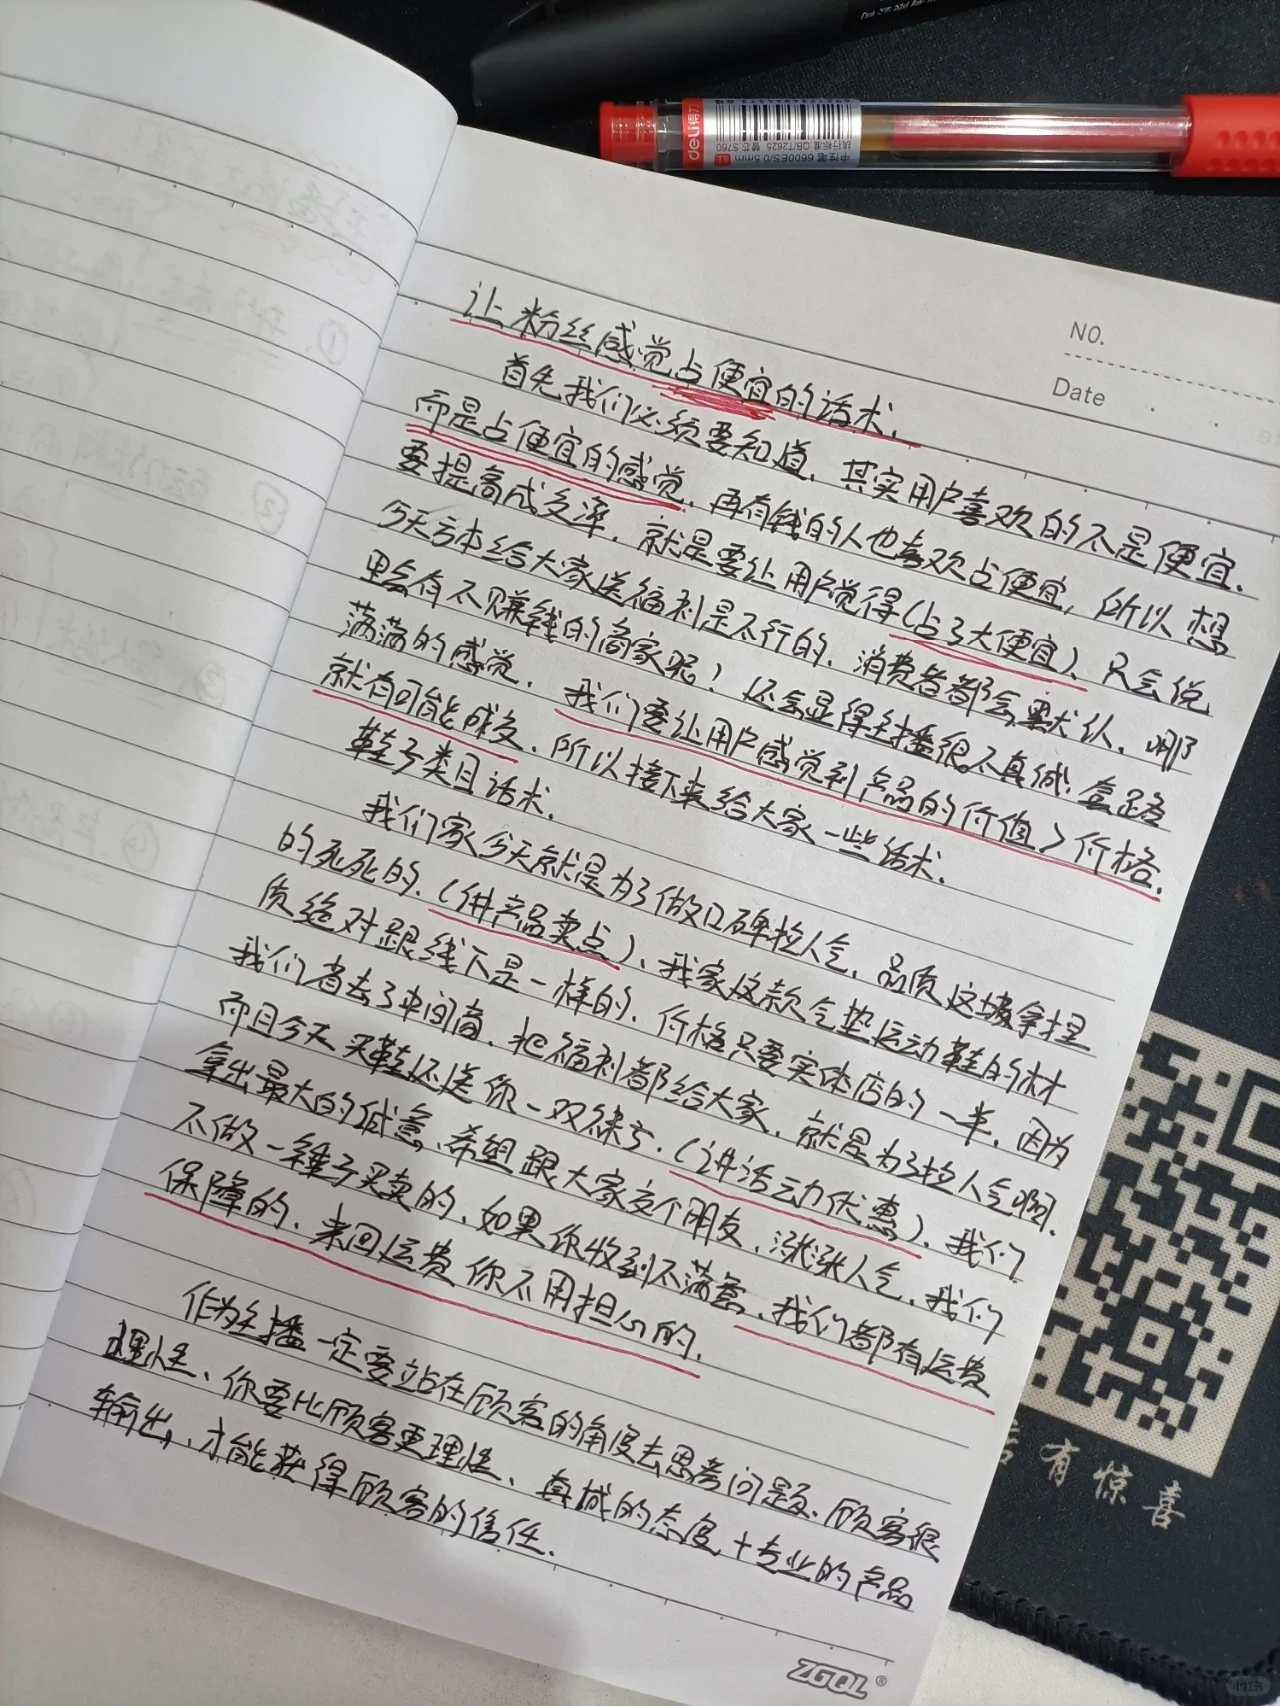 让粉丝感觉占便宜的话术、
首先我们必须要知道、其实用户喜欢的不是便宜、
而是占便宜的感觉、再有钱的人也喜欢占便宜, 所以想
要提高成交率、就是要让用户觉得(占了大便宜)、只会说
今天亏本给大家送福利是不行的、消费者都会默认、哪
里会有不赚钱的商家呢! 还会显得主播很不真诚, 套路
满满的感觉、我们要让用户感觉到产品的价值>价格、
就有可能成交、所以接下来给大家一些话术、
鞋子类目话术、
我们家今天就是为了做口碑拉人气、品质这块拿捏
的死死的、(讲产品卖点)、我家这款气垫运动鞋的材
质绝对跟线下是一样的、价格只要实体店的一半、因为
我们省去了中间商、把福利都给大家、就是为了拉人气啊、
而且今天买鞋还送你一双袜子、(讲活动优惠)、我们
拿出最大的诚意、希望跟大家交个朋友、涨涨人气、我们
不做一锤子买卖的、如果你收到不满意、我们都有运费
保障的、来回运费你不用担心的、
作为主播一定要站在顾客的角度去思考问题、顾客很
理性、你要比顾客更理性、真诚的态度+专业的产品
输出、才能获得顾客的信任、
NO.
Date
ZGQL®
deli得力
中性笔 6600ES/0.5mm
执行标准 QB/T2625 替芯 S760
有惊喜
小红书